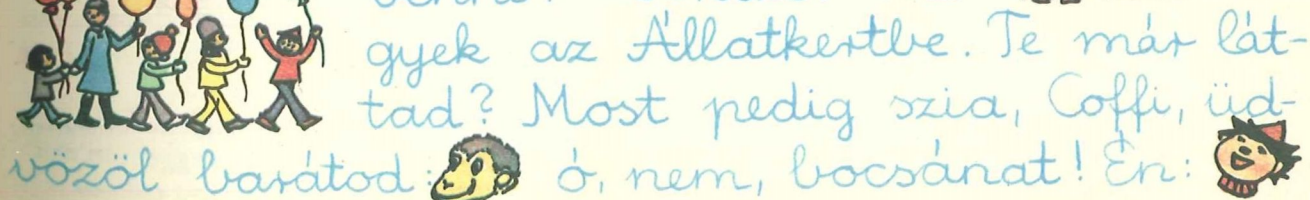 gyek az Állatkertbe. Te már lát-
tad? Most pedig szia, Coffi, üd-
vözöl barátod: ó, nem, bocsánat! Én: